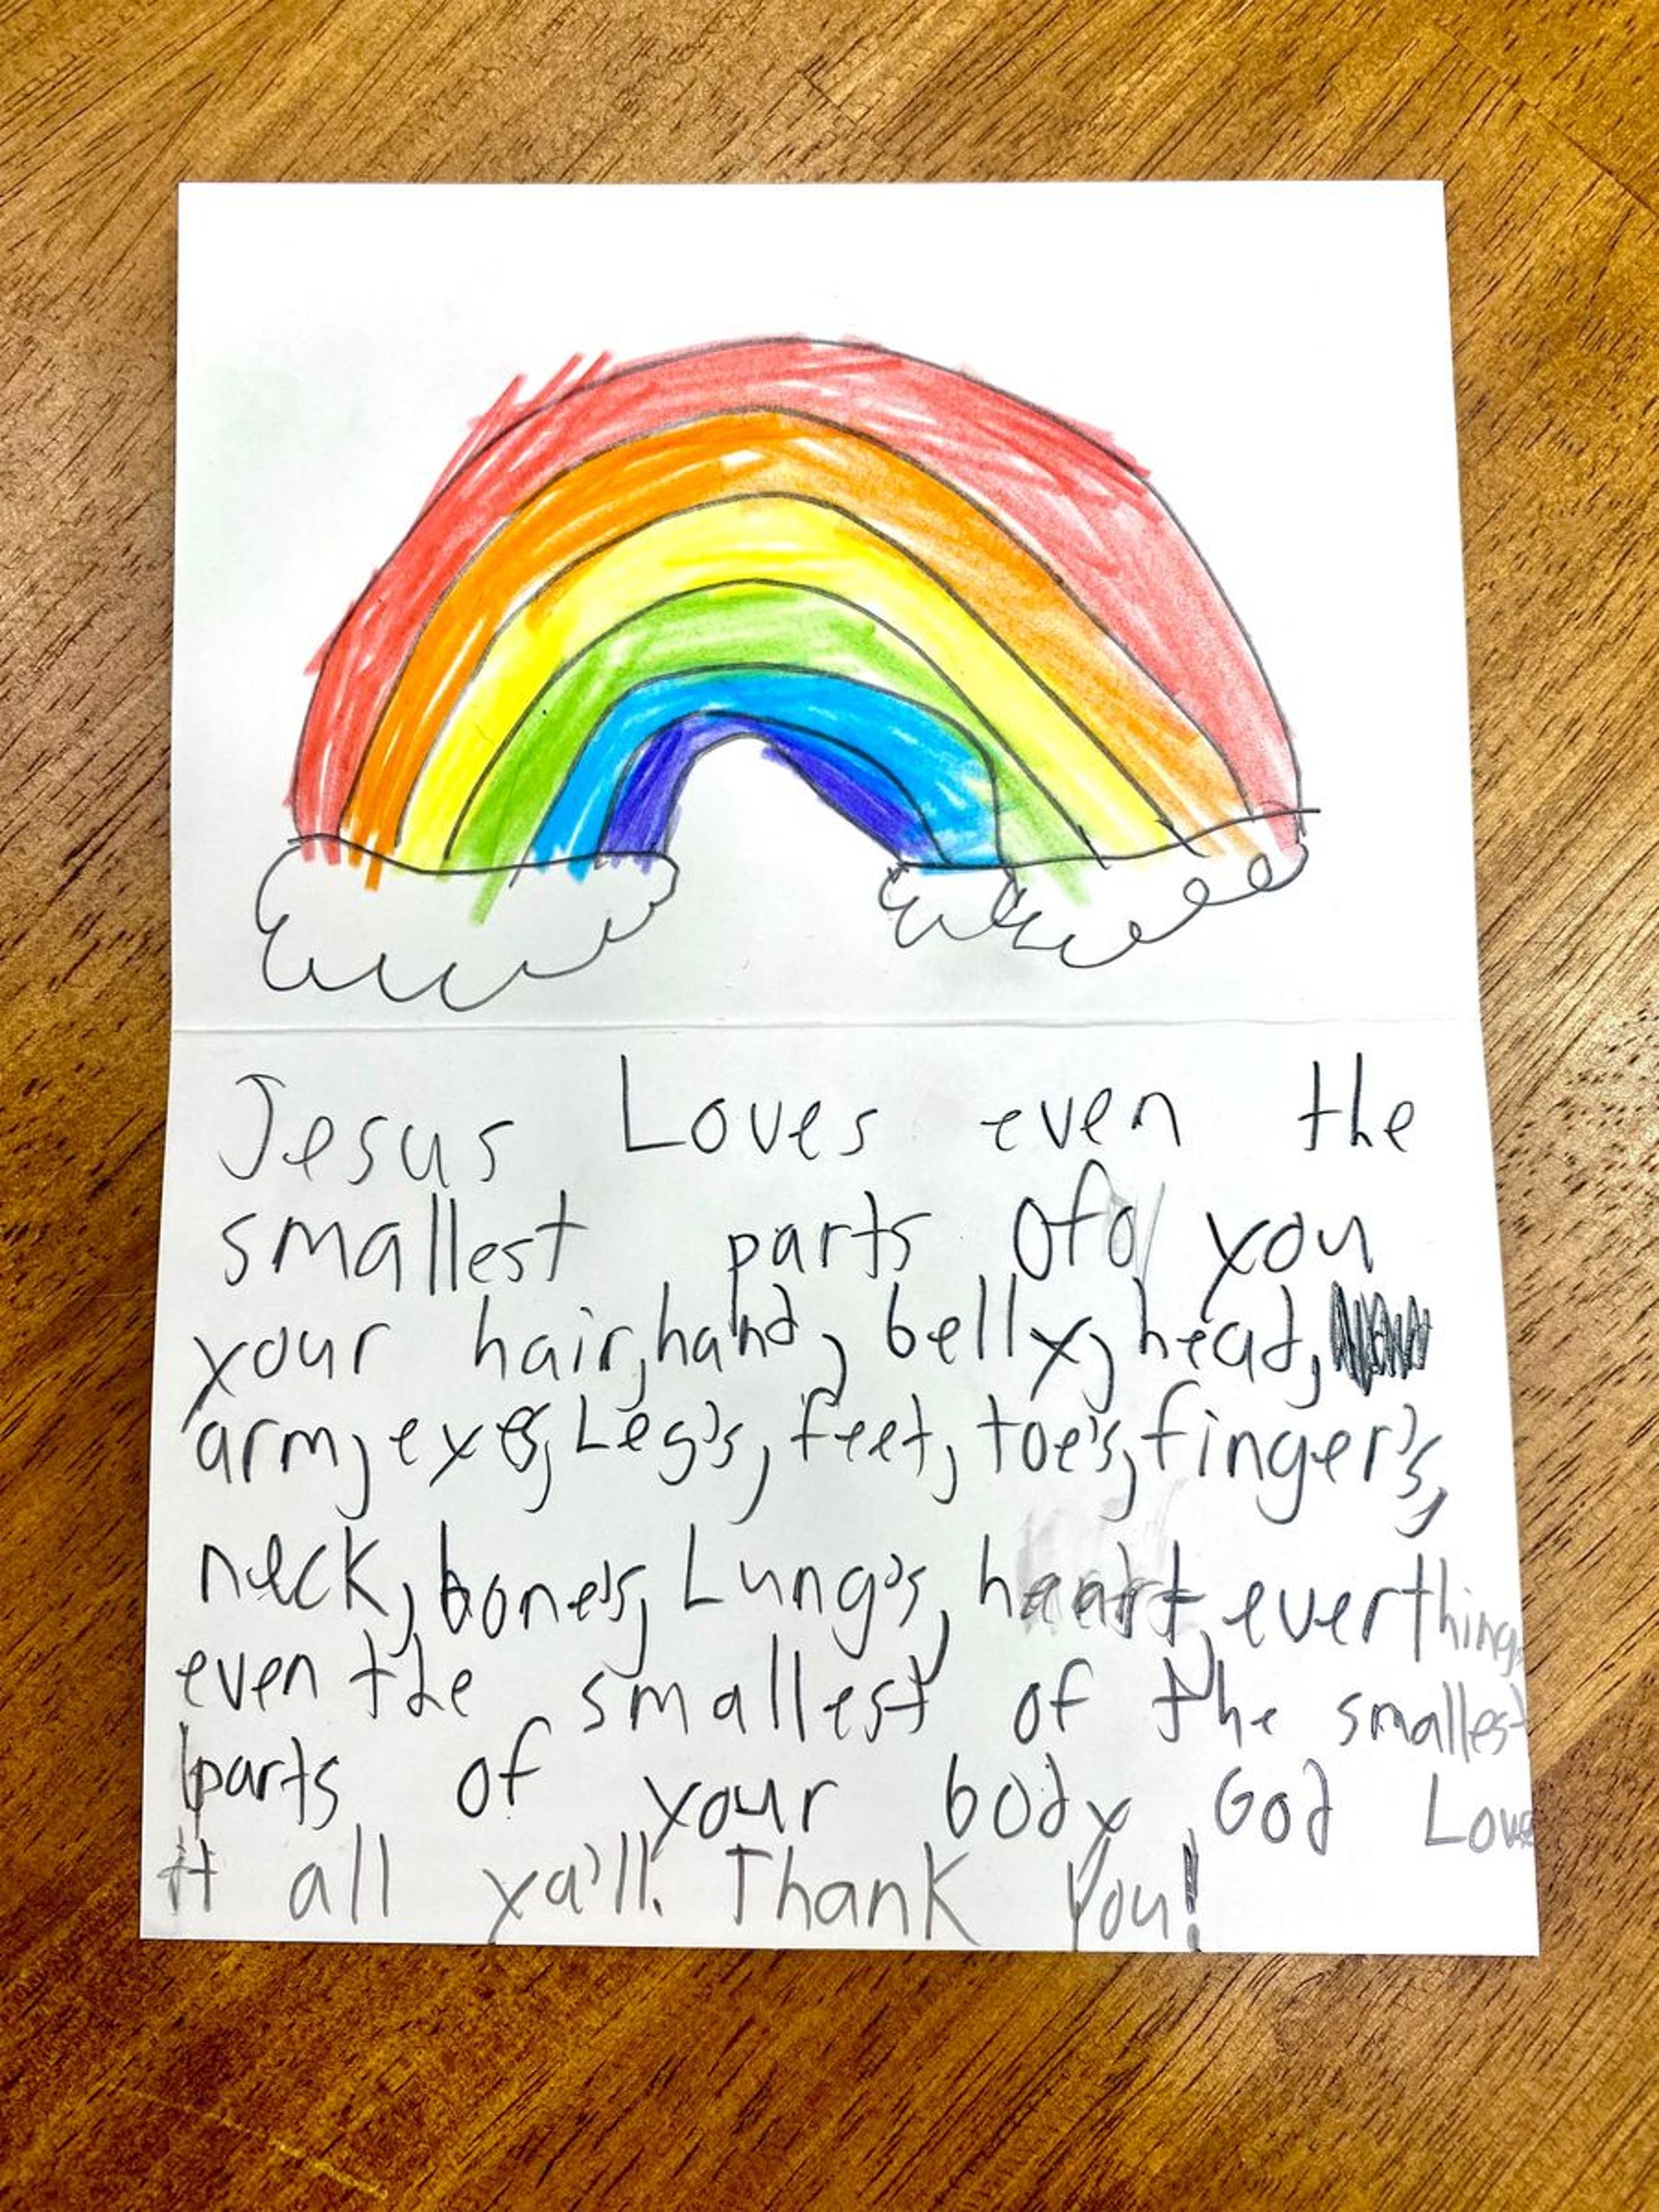 Jesus Loves even the
smallest parts of you
your hair, hand, belly, head,
arm, eyes, Leg's, feet, toe's, finger's,
neck, bone's, Lung's, heart, everthing
even the smallest of the smallest
parts of your body God Love
it all ya'll. Thank You!